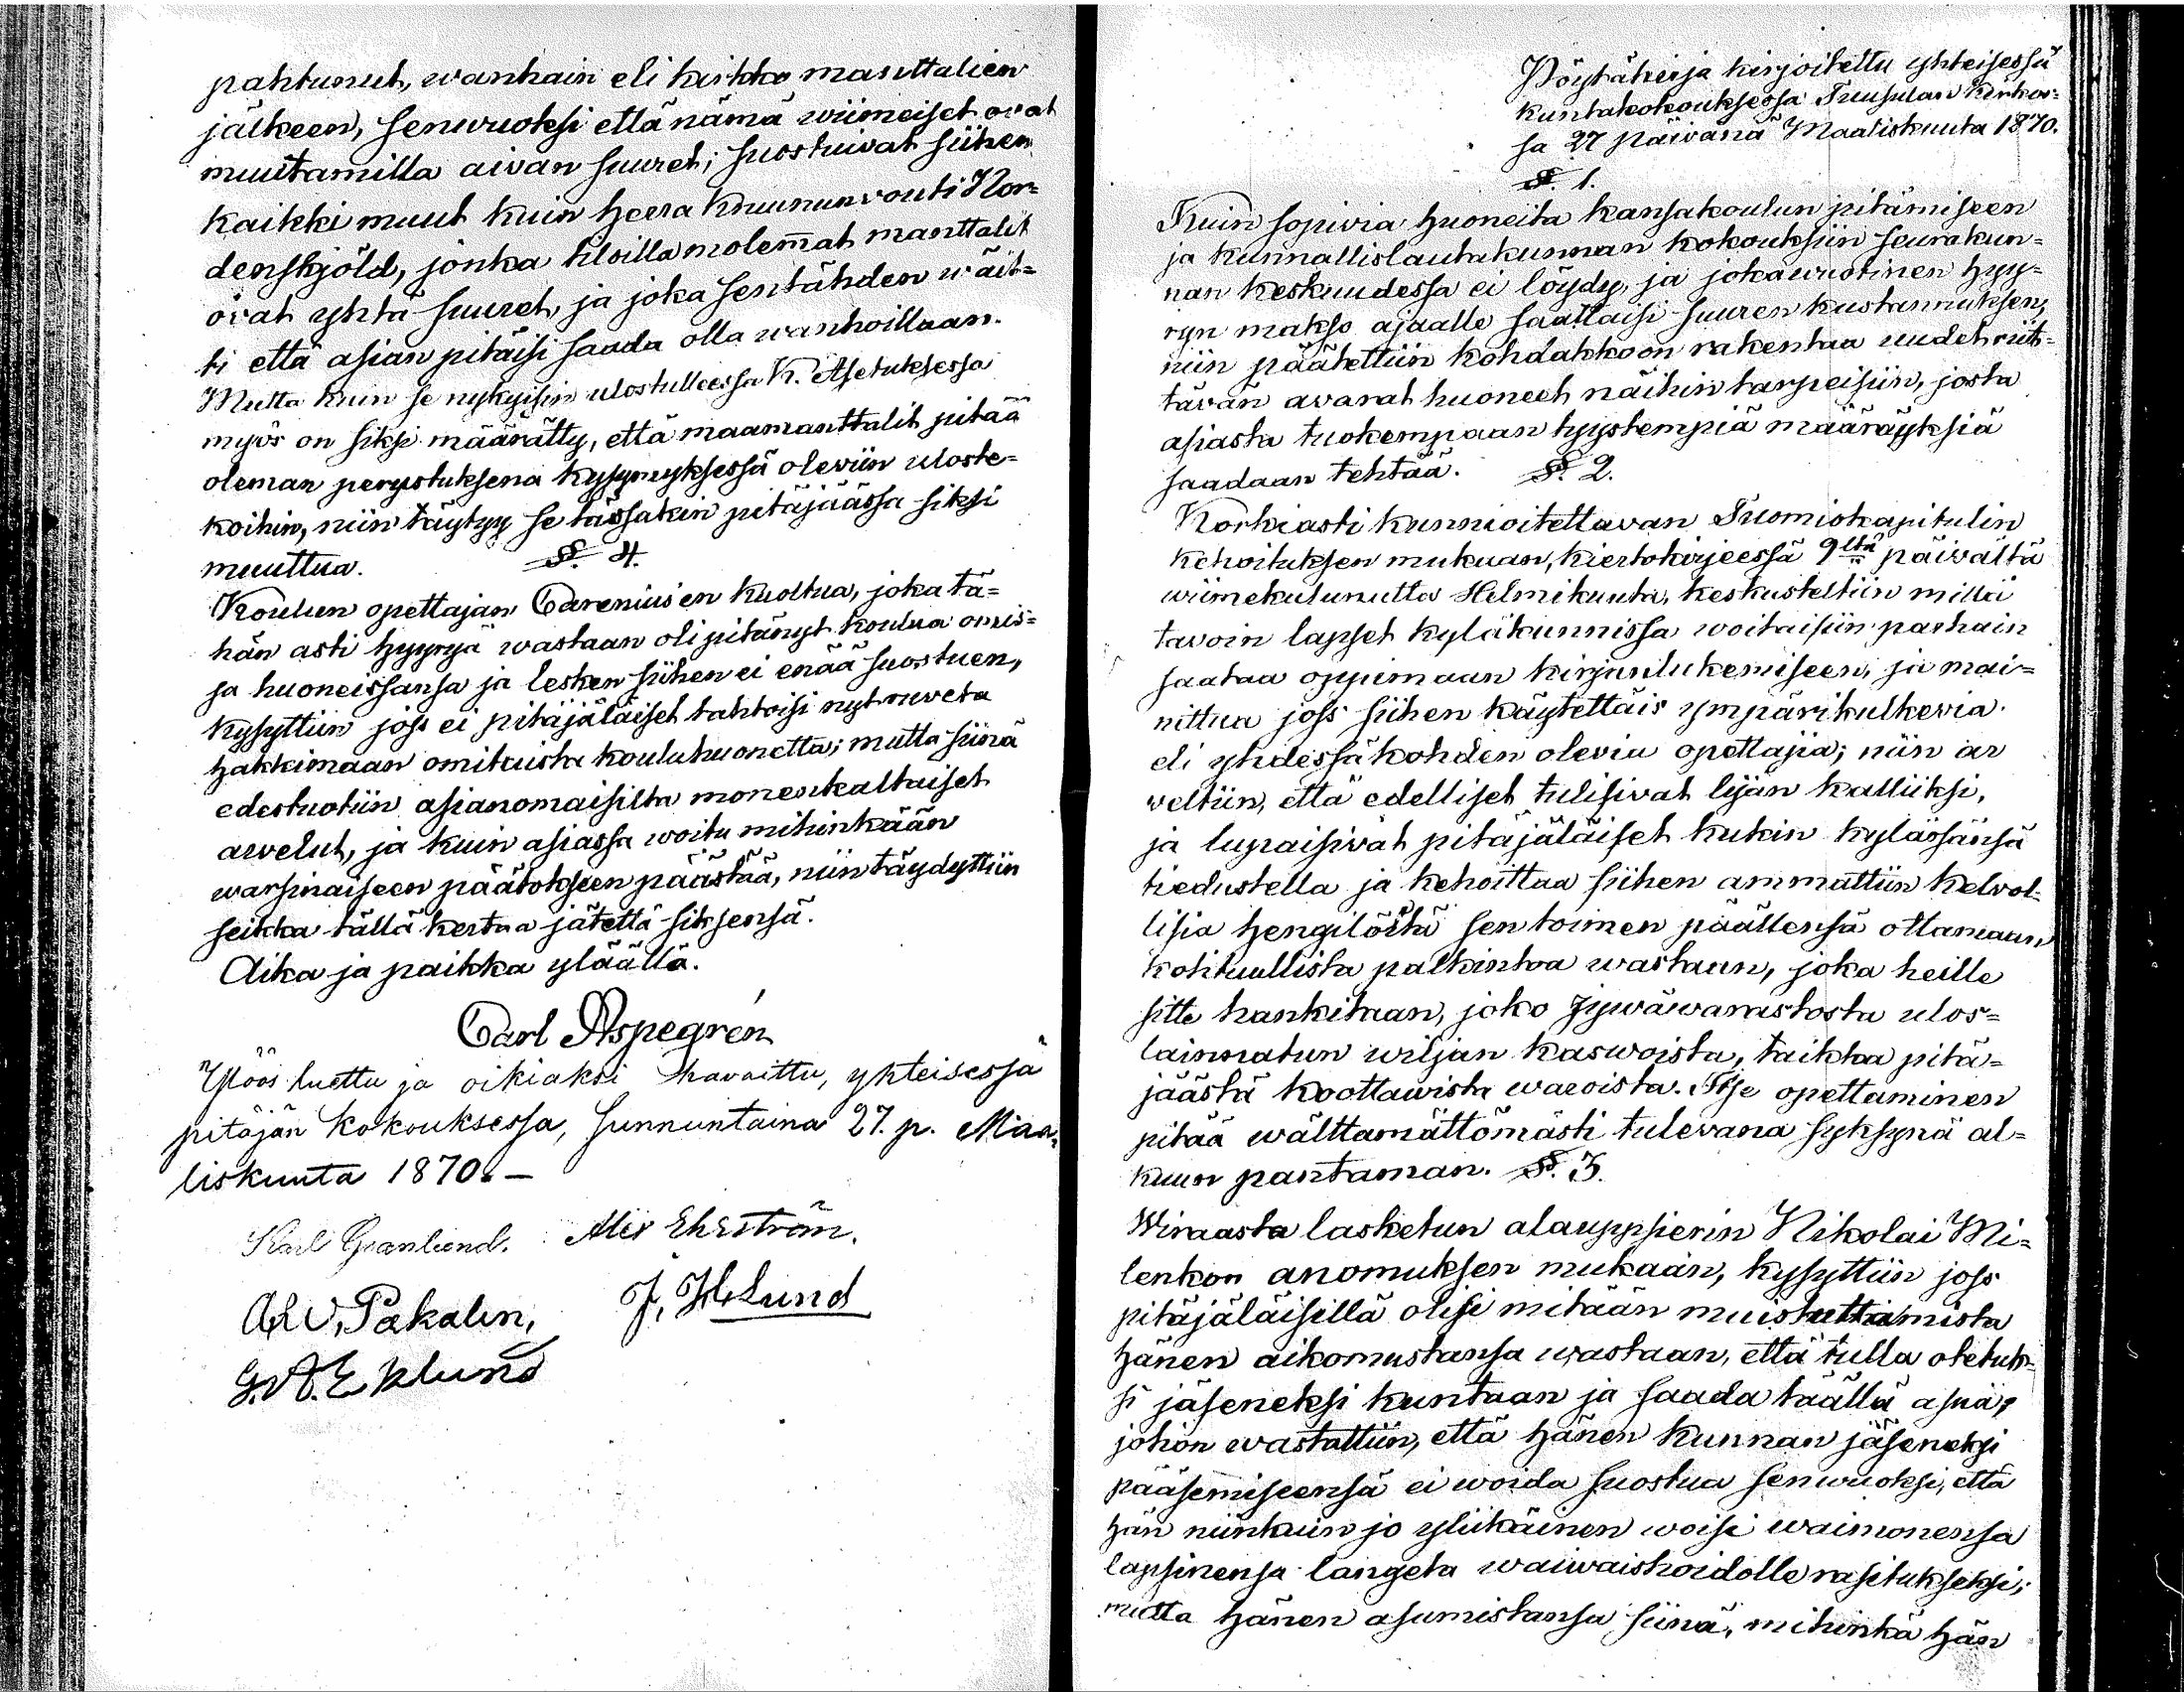 pahtunut, wanhain eli kirkko manttalien
jälkeen, senwuoksi että nämä wiimeiset ovat
muutamilla aivan suuret; suostuivat siihen
kaikki muut kuin herra kruununvouti Nor=
denskjöld, jonka tiloilla molemat manttalit
ovat yhtä suuret, ja joka sentähden wäit=
ti että asian pitäisi saada olla wanhoillaan.
Mutta kuin se nykyisin ulostulleessa K. Asetuksessa
myös on siksi määrätty, että maamanttalit pitää
oleman perustuksena kysymyksessä oleviin uloste=
koihin, niin täytyy se tässäkin pitäjäässä siksi
muuttua.
§. 4.
Koulun opettajan Carenius'en kuoltua, joka tä=
hän asti hyyryä wastaan oli pitänyt koulua omis=
sa huoneissansa ja lesken siihen ei enää suostuen,
kysyttiin joss ei pitäjäläiset tahtoisi nyt ruveta
hakkimaan omituista kouluhuonetta; mutta siinä
edestuotiin asianomaisilta monenkaltaiset
arvelut, ja kuin asiassa woitu mihinkään
warsinaiseen päätökseen päästää, niin täydyttiin
seikka tällä kertaa jätettä siksensä.
Aika ja paikka ylääällä.
Carl Aspegrén
Ylöös luettu ja oikiaksi havaittu, yhteisessä
pitäjän kokouksessa, sunnuntaina 27. p. Maa=
liskuuta 1870. —
Karl Granlund. Alex Ekström.
A. W. Pakalen, J. H. Lund
G. A. Eklund
Pöytäkirja kirjoitettu yhteisessä
kuntakokouksessa Tuusulan kirkos=
sa 27 päivänä Maaliskuuta 1870.
§. 1.
Kuin sopivia huoneita kansakoulun pitämiseen
ja kunnallislautakunnan kokouksiin seurakun=
nan keskuudessa ei löydy, ja jokawuotinen hyy=
ryn makso ajaalle saattaisi suuren kustannuksen,
niin päätettiin kohdakkoon rakentaa uudet riit=
tävän avarat huoneet näihin tarpeisiin, josta
asiasta tuokempaan tyystempiä määräyksiä
saadaan tehtää.
§. 2.
Korkiasti kunnioitettavan Tuomiokapitulin
kehoituksen mukaan, kiertokirjeessä 9ltä päivältä
wiimekulunutta Helmikuuta, keskusteltiin millä
tavoin lapset kyläkunnissa woitaisiin parhain
saataa oppimaan kirjanlukemiseen, ja mai=
nittua joss siihen käytettäis ympärikulkevia
eli yhdessäkohden olevia opettajia; niin ar
veltiin, että edelliset tulisivat lijän kalliiksi,
ja lupaisivat pitäjäläiset kukin kylässänsä
tiedustella ja kehoittaa siihen ammattiin kelvol=
lisia hengilöitä sen toimen päällensä ottamaan,
kohtuullista palkintoa wastaan, joka heille
sitte hankitaan, joko jywäwarastosta ulos=
lainatun wiljan kaswoista, taikka pitä=
jäästä koottawista waroista. Itse opettaminen
pitää wälttamättömästi tulevana syksynä al=
kuun pantaman.
§. 3.
Wiraasta lasketun alauppsierin Nikolai Mi=
lenkon anomuksen mukaan, kysyttiin joss
pitäjäläisillä olisi mitään muistuttamista
hänen aikomustansa wastaan, että tulla otetuk=
si jäseneksi kuntaan ja saada täällä asua,
johon wastattiin, että hänen kunnan jäseneksi
pääsemiseensä ei woida suostua senwuoksi, että
hän niinkuin jo yliikäinen woisi waimonensa
lapsinensa langeta waiwaishoidolle rasitukseksi;
mutta hänen asumistansa siinä, mihinkä hän